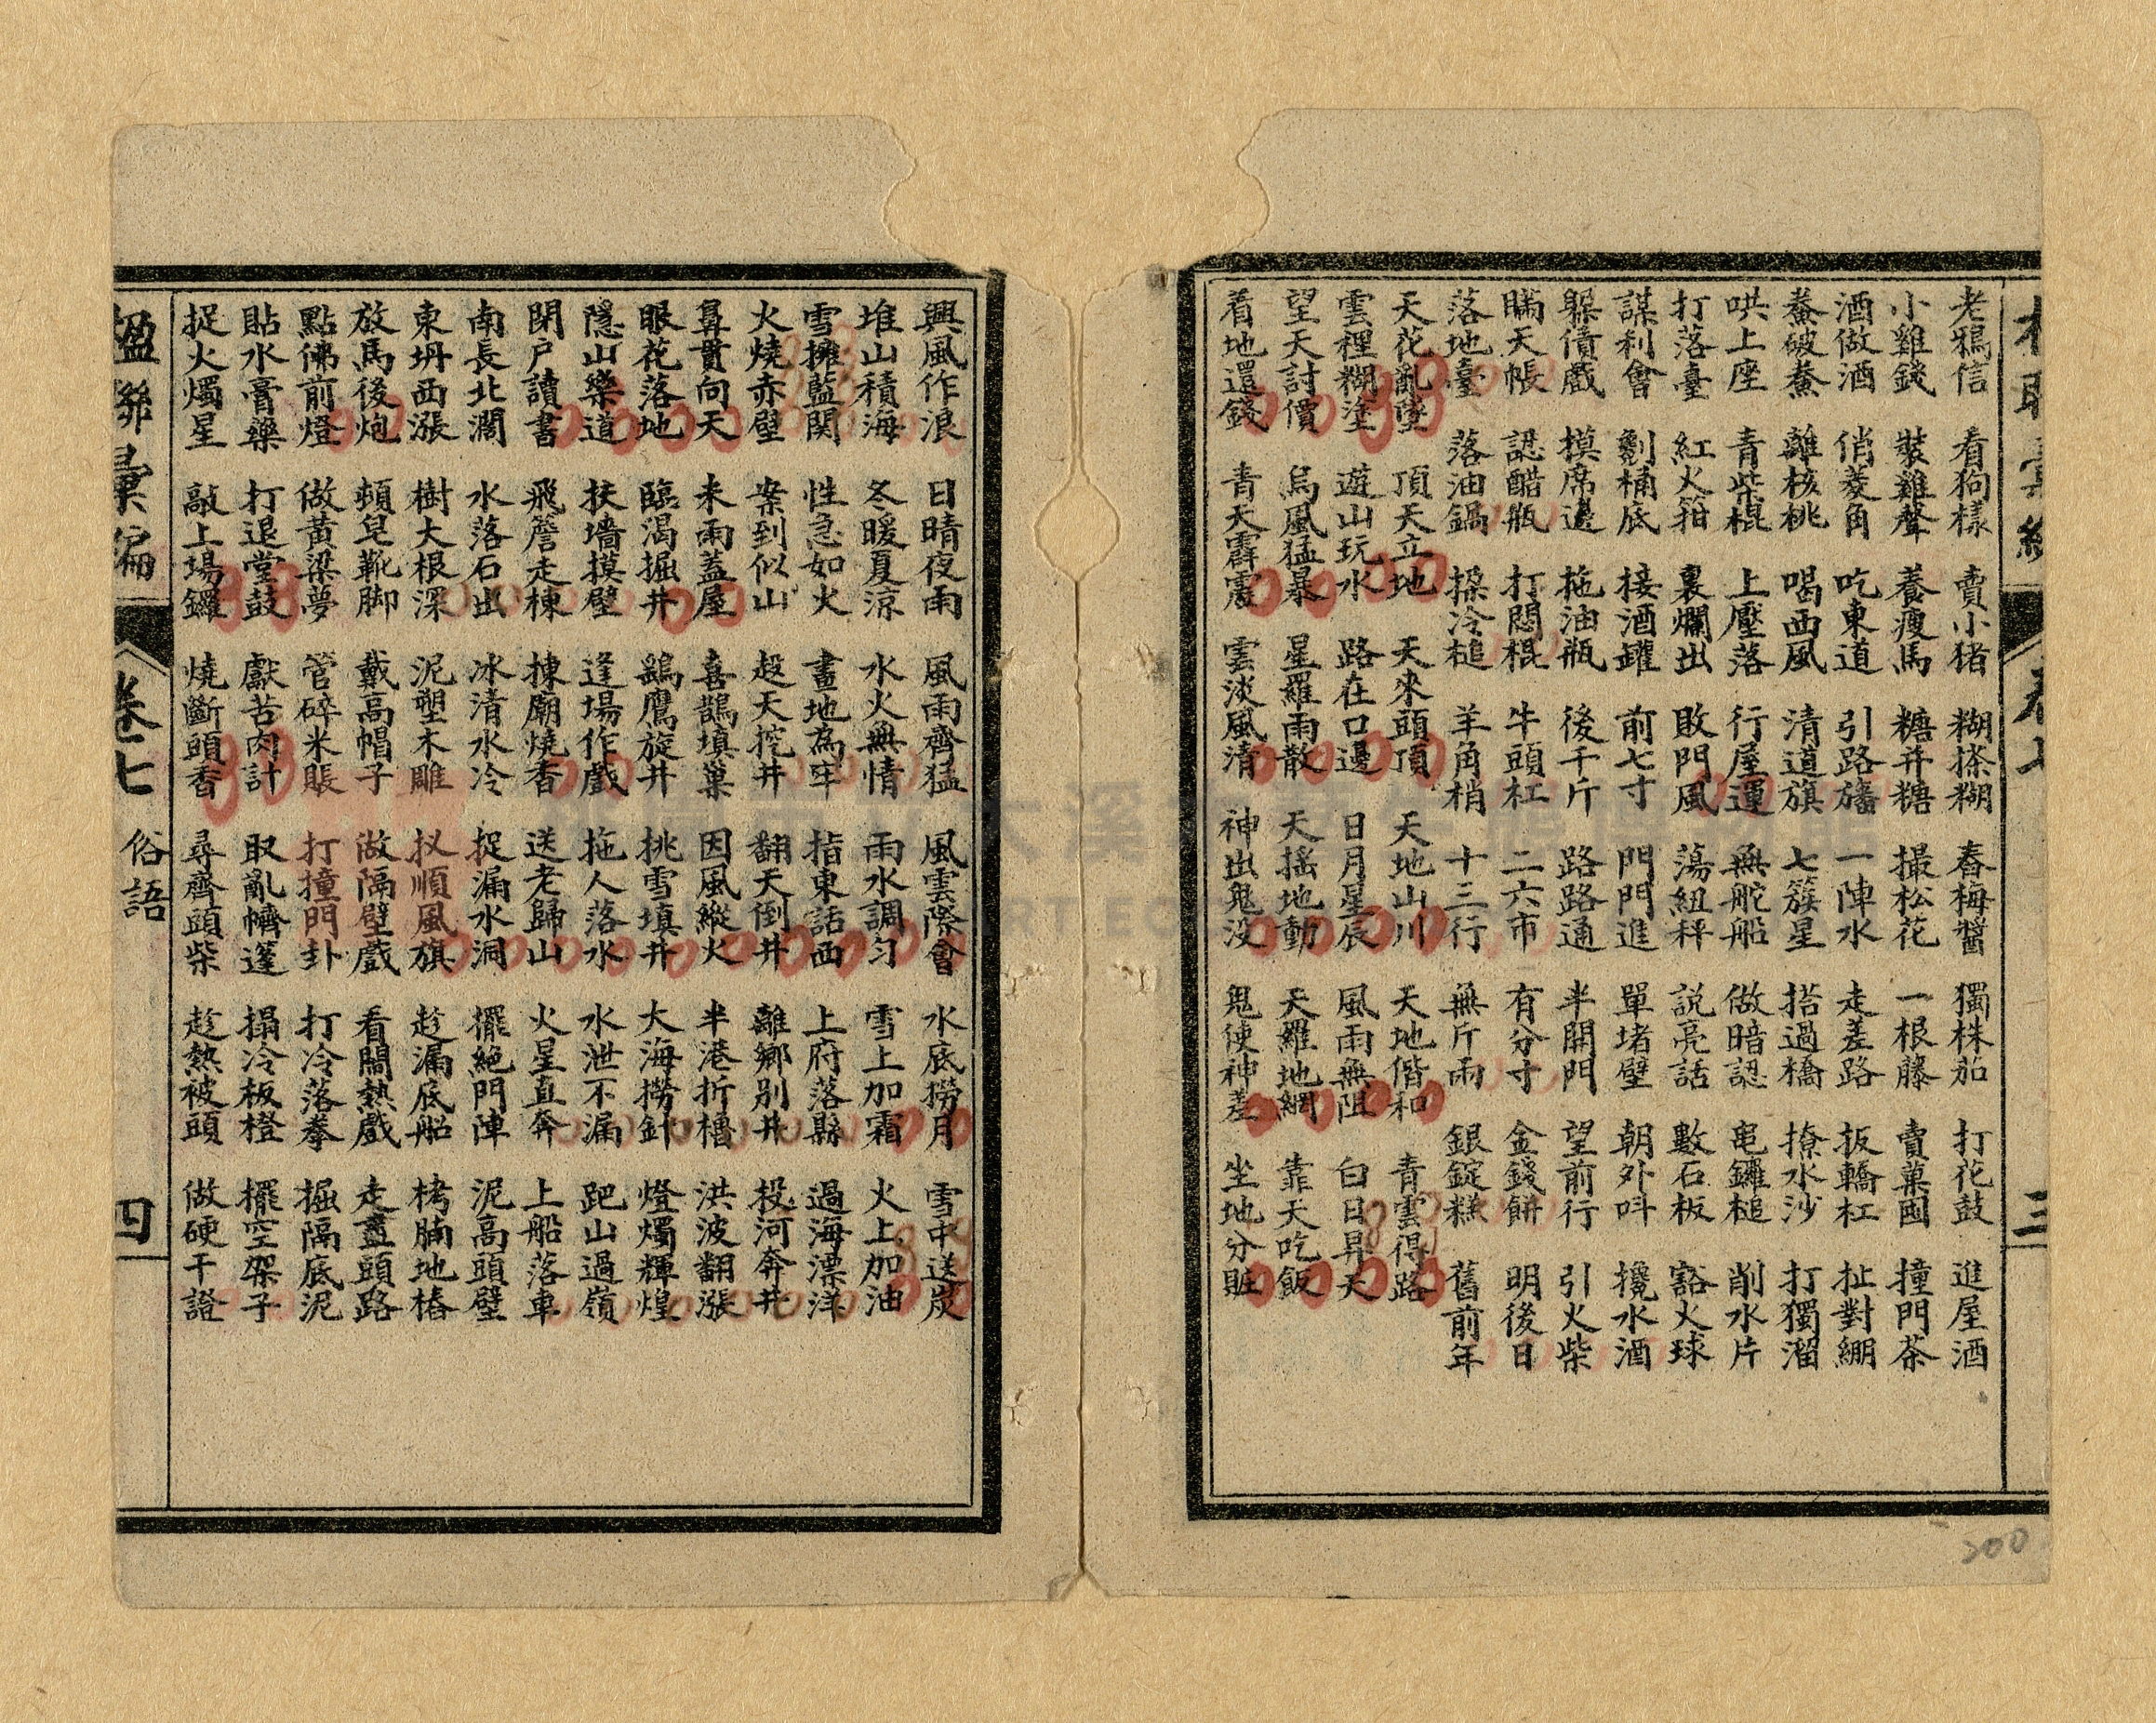 老鴉信 看狗樣 賣小猪 糊搽糊 舂梅醬 獨株茄 打花鼓 進屋酒
小雞錢 裝雞聲 養瘦馬 糖并糖 撮松花 一根藤 賣菓囡 撞門茶
酒做酒 俏菱角 吃東道 引路旛 一陣水 走差路 扳轎杠 扯對綳
鰲破鰲 離核桃 喝西風 清道旗 七簇星 搭過橋 撩水沙 打獨溜
哄上座 青柴棍 上壓落 行屋運 無舵船 做暗認 電鑼槌 削水片
打落臺 紅火箝 裏爛出 敗門風 蕩紐秤 説亮話 數石板 豁火球
謀利會 劉桶底 接酒罐 前七寸 門門進 單堵壁 朝外呌 攙水酒
躲債戲 摸席邊 拖油瓶 後千斤 路路通 半開門 望前行 引火柴
瞞天帳 認醋瓶 打悶棍 牛頭杠 二六市 有分寸 金錢餅 明後日
落地臺 落油鍋 搡冷槌 羊角梢 十三行 無斤兩 銀錠糕 舊前年
天花亂墜 頂天立地 天來頭頂 天地山川 天地偕和 青雲得路
雲裡糊塗 遊山玩水 路在口邊 日月星辰 風雨無阻 白日昇天
望天討價 烏風猛暴 星羅雨散 天搖地動 天羅地網 靠天吃飯
着地還錢 青天霹靂 雲淡風清 神出鬼没 鬼使神差 坐地分賍
卷七
三
興風作浪 日晴夜雨 風雨齊猛 風雲際會 水底撈月 雪中送炭
堆山積海 冬暖夏涼 水火無情 雨水調匀 雪上加霜 火上加油
雪擁藍関 性急如火 畫地為牢 指東話西 上府落縣 過海漂洋
火燒赤壁 案到似山 趕天挖井 翻天倒井 離鄉別井 投河奔井
鼻貫向天 未雨蓋屋 喜鵲填巢 因風縱火 半港折櫓 洪波翻漲
眼花落地 臨渴掘井 鷂鷹旋井 挑雪填井 大海撈針 燈燭輝煌
隱山樂道 扶墻摸壁 逢場作戲 拖人落水 水泄不漏 跁山過嶺
閉户讀書 飛簷走棟 揀廟燒香 送老歸山 火星直奔 上船落車
南長北濶 水落石出 冰清水冷 捉漏水洞 擺絕門陣 泥高頭壁
東坍西漲 樹大根深 泥塑木雕 扠順風旗 趁漏底船 栲腩地樁
放馬後炮 頼皂靴脚 戴高帽子 做隔壁戲 看鬧熱戲 走盡頭路
點佛前燈 做黃粱夢 管碎米賬 打撞門卦 打冷落拳 掘隔底泥
貼水膏藥 打退堂鼓 獻苦肉計 取亂幬篷 搨冷板櫈 擺空架子
捉火燭星 敲上場鑼 燒斷頭香 尋齊頭柴 趁熱被頭 做硬干證
楹聯彙編
卷七
俗語
四
200